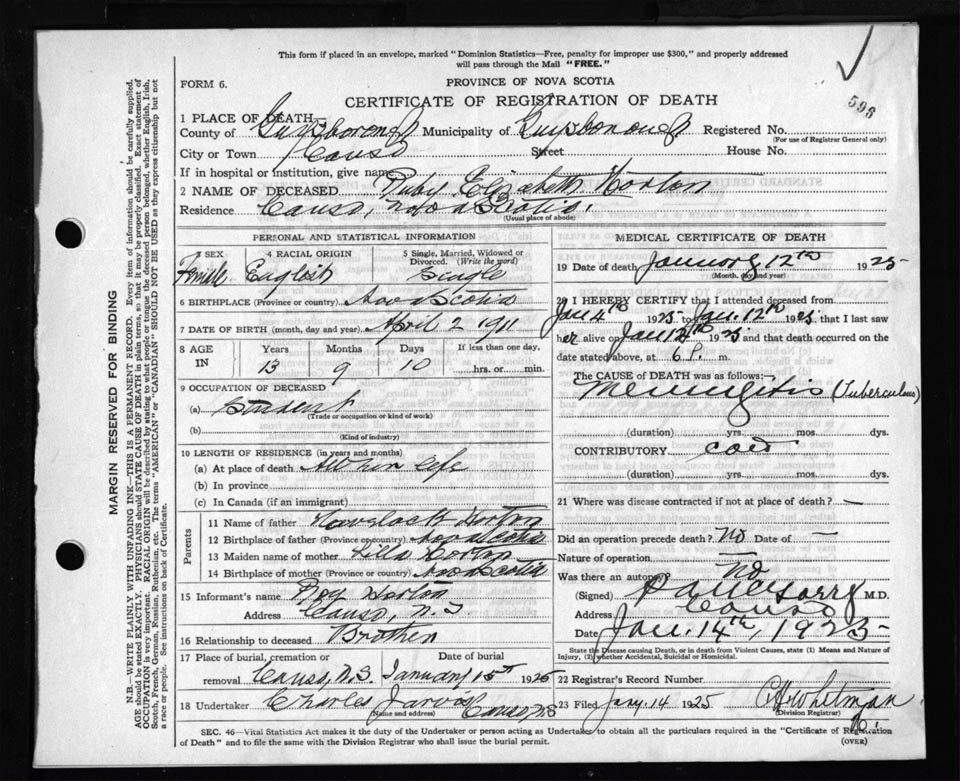 This form if placed in an envelope, marked "Dominion Statistics—Free, penalty for improper use $300," and properly addressed
will pass through the Mail "FREE."
FORM 6.
PROVINCE OF NOVA SCOTIA
CERTIFICATE OF REGISTRATION OF DEATH
596
1 PLACE OF DEATH
County of Guysborough Municipality of Guysborough Registered No.
(For use of Registrar General only)
City or Town Canso Street House No.
If in hospital or institution, give name
2 NAME OF DECEASED Ruby Elizabeth Horton
Residence Canso, Nova Scotia.
(Usual place of abode)
PERSONAL AND STATISTICAL INFORMATION
3 SEX Female
4 RACIAL ORIGIN English
5 Single, Married, Widowed or Divorced. (Write the word) Single
6 BIRTHPLACE (Province or country) Nova Scotia
7 DATE OF BIRTH (month, day and year) April 2 1911
8 AGE IN Years Months Days If less than one day,
13 9 10 hrs. or min.
9 OCCUPATION OF DECEASED
(a) Student
(Trade or occupation or kind of work)
(b)
(Kind of industry)
10 LENGTH OF RESIDENCE (in years and months)
(a) At place of death All her life
(b) In province
(c) In Canada (if an immigrant)
Parents
11 Name of father Horton
12 Birthplace of father (Province or country) Nova Scotia
13 Maiden name of mother Horton
14 Birthplace of mother (Province or country) Nova Scotia
15 Informant's name Roy Horton
Address Canso, N.S.
16 Relationship to deceased Brother
17 Place of burial, cremation or Date of burial
removal Canso, N.S. January 15th 1925
18 Undertaker Charles Jarvis Canso N.S
(Name and address)
MEDICAL CERTIFICATE OF DEATH
19 Date of death January 12th 1925
(Month, day and year)
20 I HEREBY CERTIFY that I attended deceased from
Jan 4th 1925 to Jan. 12th 1925, that I last saw
her alive on Jan 12th 1925 and that death occurred on the
date stated above, at 6 P. m.
The CAUSE OF DEATH was as follows:—
Meningitis (Tuberculous)
(duration) yrs. mos. dys.
CONTRIBUTORY Cold
(duration) yrs. mos. dys.
21 Where was disease contracted if not at place of death? —
Did an operation precede death? No Date of —
Nature of operation —
Was there an autopsy No
(Signed) M.D.
Address Canso
Date Jan. 14th, 1925
State the Disease causing Death, or in death from Violent Causes, state (1) Means and Nature of
Injury, (2) whether Accidental, Suicidal or Homicidal.
22 Registrar's Record Number
23 Filed Jany. 14 1925 Whitman
(Division Registrar)
SEC. 46—Vital Statistics Act makes it the duty of the Undertaker or person acting as Undertaker to obtain all the particulars required in the "Certificate of Registration
of Death" and to file the same with the Division Registrar who shall issue the burial permit.
(OVER)
MARGIN RESERVED FOR BINDING
N.B.—WRITE PLAINLY WITH UNFADING INK—THIS IS A PERMANENT RECORD. Every item of information should be carefully supplied.
AGE should be stated EXACTLY. PHYSICIANS should STATE CAUSE OF DEATH in plain terms, so that it may be properly classified. Exact statement of
OCCUPATION is very important. RACIAL ORIGIN will be described by stating to what people or tongue the deceased person belonged, whether English, Irish,
Scotch, French, German, Russian, Ruthenian, etc. The terms "AMERICAN" or "CANADIAN" SHOULD NOT BE USED as they express citizenship but not
a race or people. See instructions on back of Certificate.